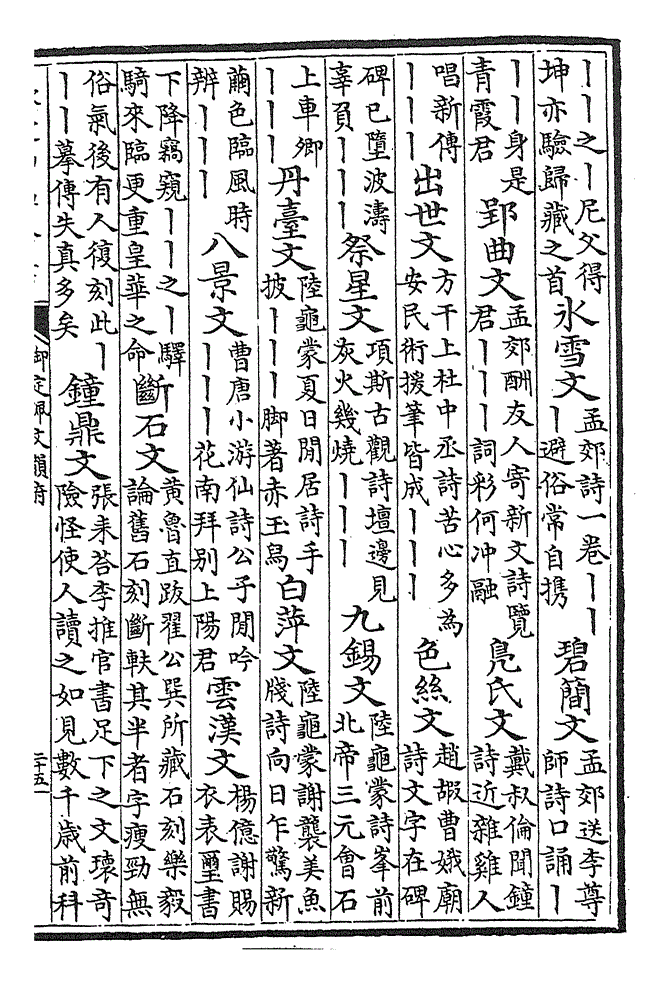 丨丨之丨尼父得
坤亦驗歸藏之首
氷雪文
孟郊詩一卷丨丨
丨避俗常自携
碧簡文
孟郊送李尊
師詩口誦丨
丨丨身是
青霞君
郢曲文
孟郊酬友人寄新文詩覽
君丨丨丨詞彩何沖融
鳧氏文
戴叔倫聞鐘
詩近雜雞人
唱新傳
丨丨丨
出世文
方干上杜中丞詩苦心多為
安民術援筆皆成丨丨丨
色絲文
趙嘏曹娥廟
詩文字在碑
碑已墮波濤
辜負丨丨丨
祭星文
項斯古觀詩壇邊見
灰火幾燒丨丨丨
九錫文
陸龜蒙詩峯前
北帝三元會石
上車卿
丨丨丨
丹臺文
陸龜蒙夏日閒居詩手
披丨丨丨脚著赤玉舄
白萍文
陸龜蒙謝襲美魚
牋詩向日乍驚新
繭色臨風時
辨丨丨丨
八景文
曹唐小游仙詩公子閒吟
丨丨丨花南拜别上陽君
雲漢文
楊億謝賜
衣表璽書
下降竊窺丨丨之丨驛
騎來臨更重皇華之命
斷石文
黄魯直跋翟公巽所藏石刻樂毅
論舊石刻斷軼其半者字瘦勁無
俗氣後有人復刻此丨
丨丨摹傳失真多矣
鐘鼎文
張耒荅李推官書足下之文瓌奇
險怪使人讀之如見數千歲前科
御定佩文韻府